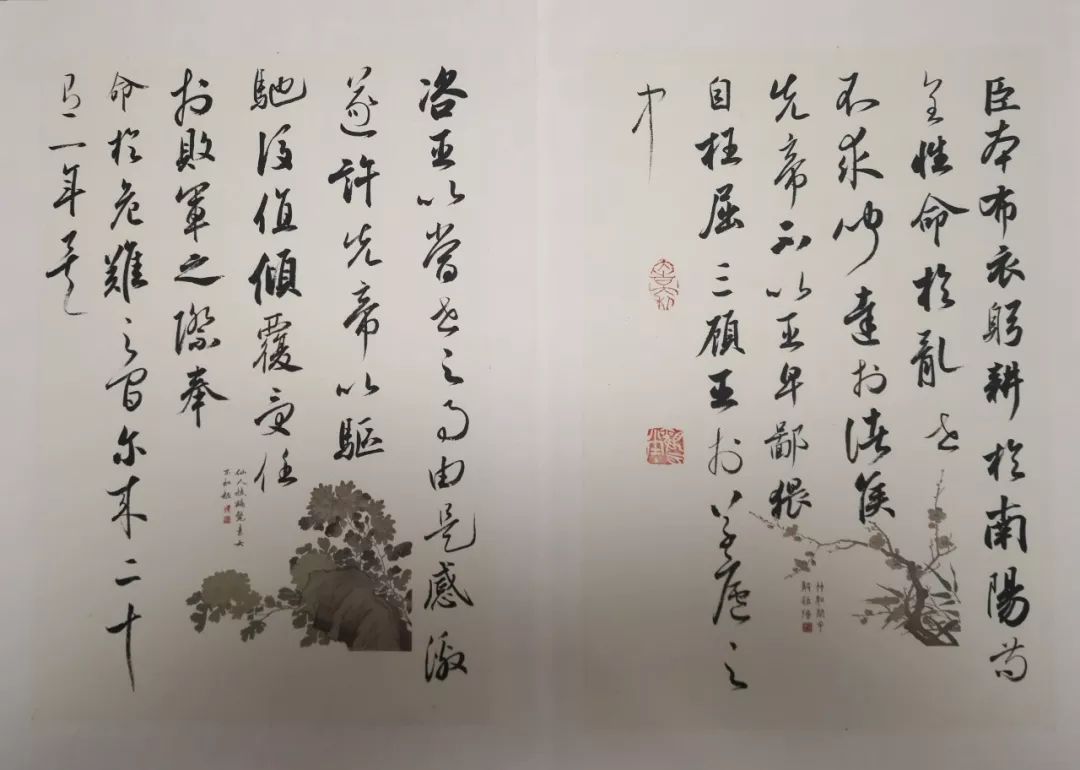 臣本布衣躬耕於南陽苟
全性命於亂世
不求聞達於諸侯
先帝不以臣卑鄙猥
自枉屈三顧臣於草廬之
中
咨臣以當世之事由是感激
遂許先帝以驅
馳後值傾覆受任
於敗軍之際奉
命於危難之間爾來二十
有二年矣
仙人披鶴氅素女